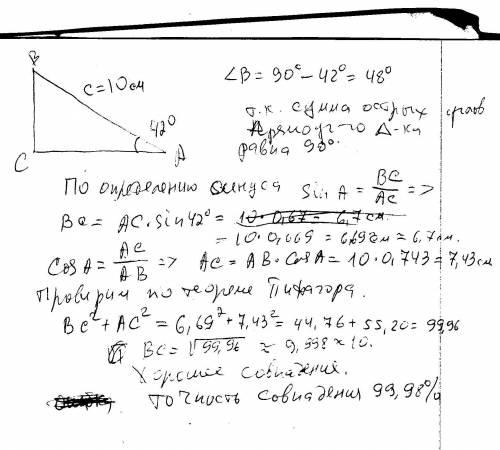 B
c=10см
42°
C
A
∠B = 90° - 42° = 48°
т.к. сумма острых углов
прямоуг-го Δ-ка
равна 90°.
По определению синуса sin A = BC/AC =>
BC = AC·sin42° = 10·0,67 = 6,7 см.
= 10·0,669 = 6,69 см ≈ 6,7 см.
Cos A = AC/AB => AC = AB·Cos A = 10·0,743 = 7,43 см
Проверим по теореме Пифагора.
BC² + AC² = 6,69² + 7,43² = 44,76 + 55,20 = 99,96
BC = √99,96 ≈ 9,998 ≈ 10.
Хорошее совпадение.
точность совпадения 99,98%